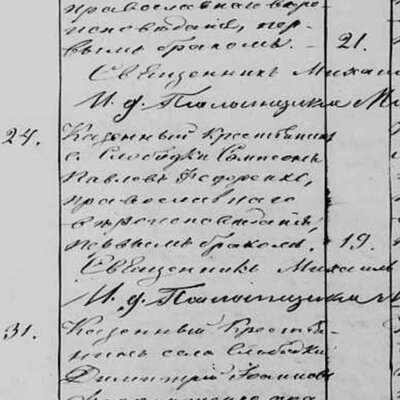 православнаго вѣро-
исповѣданія, пер-
вымъ бракомъ. 21.
Священникъ Михаил
И. д. Паломщика М
24. Казенный крестьянинъ
с. Слободки Самсонъ
Павловъ Федоренко,
православнаго
вѣроисповѣданія,
первымъ бракомъ. 19.
Священникъ Михаилъ
И. д. Паломщика М
31. Казенный Крестья-
нинъ села Слободки
Димитрій Іоанновъ